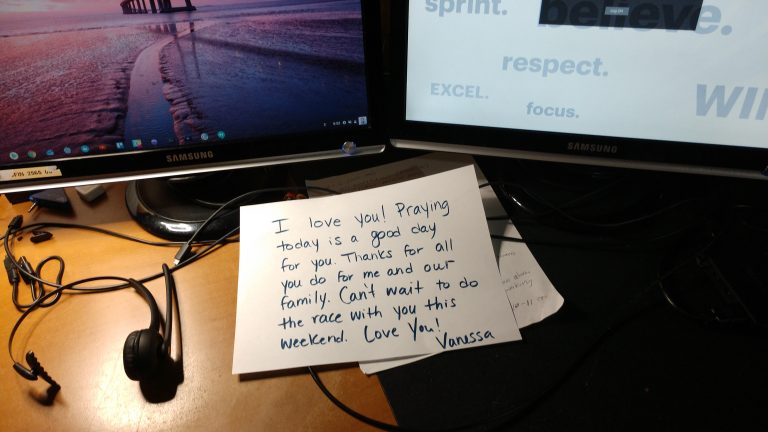 sprint.
believe.
respect.
EXCEL.
focus.
WIN
SAMSUNG
SAMSUNG
I love you! Praying
today is a good day
for you. Thanks for all
you do for me and our
family. Can't wait to do
the race with you this
weekend. Love You!
Vanessa